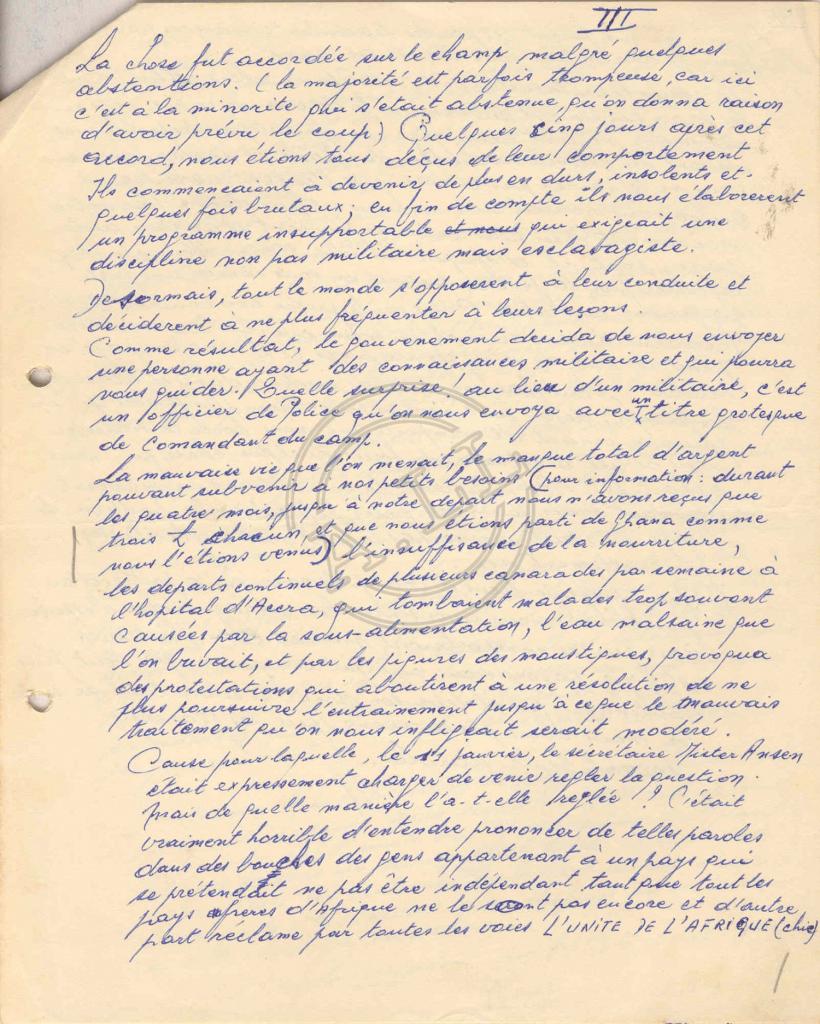 III
La chose fut accordée sur le champ malgré quelques
abstentions. (la majorité est parfois trompeuse, car ici
c'est à la minorité qui s'était abstenue, qu'on donna raison
d'avoir prévu le coup) Quelques cinq jours après cet
accord, nous étions tous déçus de leur comportement
Ils commencaient à devenir, de plus en durs, insolents et-
quelques fois brutaux; en fin de compte ils nous élaborerent
un programme insupportable et nous qui exigeait une
discipline non pas militaire mais esclavagiste.
Desormais, tout le monde s'opposerent à leur conduite et
déciderent à ne plus fréquenter à leurs leçons.
Comme résultat, le gouvenement decida de nous envoyer
une personne ayant des connaissances militaire et qui pourra
nous guider. Quelle surprise! au lieu d'un militaire, c'est
un officier de Police qu'on nous envoya avec un titre grotesque
de Comandant du camp.
La mauvaise vie que l'on menait, le manque total d'argent
pouvant subvenir à nos petits besoins (pour information: durant
les quatre mois, jusqu'à notre depart nous n'avons reçus que
trois £ chacun, et que nous étions parti de Ghana comme
nous l'étions venus) l'insuffisance de la nourriture,
les departs continuels de plusieurs camarades par semaine à
l'hopital d'Accra, qui tombaient malades trop souvent
causées par la sous-alimentation, l'eau malsaine que
l'on buvait, et par les piqures des moustiques, provoqua
des protestations qui aboutirent à une résolution de ne
plus poursuivre l'entrainement jusqu'à ceque le mauvais
traitement qu'on nous infligeait serait modéré.
Cause pour laquelle, le 11 janvier, le sécrétaire Mister Ansen
était expressement charger de venir regler la question.
Mais de quelle manière l'a-t-elle reglée!? C'était
vraiment horrible d'entendre prononcer de telles paroles
dans des bouches des gens appartenant à un pays qui
se prétendait ne pas être indépendant tant que tout les
pays frères d'Afrique ne le sont pas encore et d'autre
part reclame par toutes les voies L'UNITE DE L'AFRIQUE (chic)